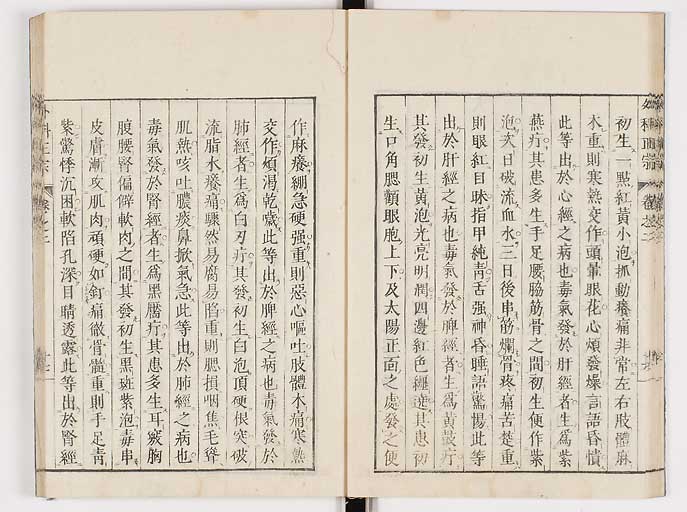 初生一點紅黃小泡抓動癢痛非常左右肢體麻
木重則寒熱交作頭暈眼花心煩發燥言語昏憒
此等出於心經之病也毒氣發於肝經者生爲紫
燕疔其患多生手足腰脇筋骨之間初生便作紫
泡次日破流血水三日後串筋爛骨疼痛苦楚重
則眼紅目昧指甲純靑舌强神昏睡語驚惕此等
出於肝經之病也毒氣發於脾經者生爲黃鼓疔
其發初生黃泡光亮明潤四邊紅色纏遶其患初
生口角腮顴眼胞上下及太陽正面之處發之便
作麻癢繃急硬强重則惡心嘔吐肢體木痛寒熱
交作煩渴乾噦此等出於脾經之病也毒氣發於
肺經者生爲白刃疔其發初生白泡頂硬根突破
流脂水癢痛驟然易腐易陷重則腮損咽焦毛聳
肌熱咳吐膿痰鼻掀氣急此等出於肺經之病也
毒氣發於腎經者生爲黑靨疔其患多生耳竅胸
腹腰腎偏僻軟肉之間其發初生黑斑紫泡毒串
皮膚漸攻肌肉頑硬如釘痛徹骨髓重則手足靑
紫驚悸沉困軟陷孔深目睛透露此等出於腎經